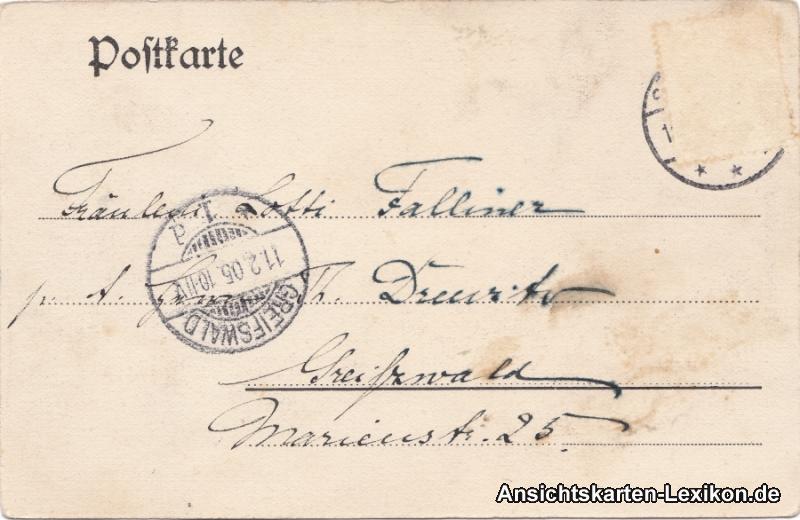 Postkarte
Fräulein Lotti Falliner
p. A. Th. Drewitz
Greifswald
Marienstr. 25
GREIFSWALD
11.2.05. 10-11V.
1 d
Ansichtskarten-Lexikon.de